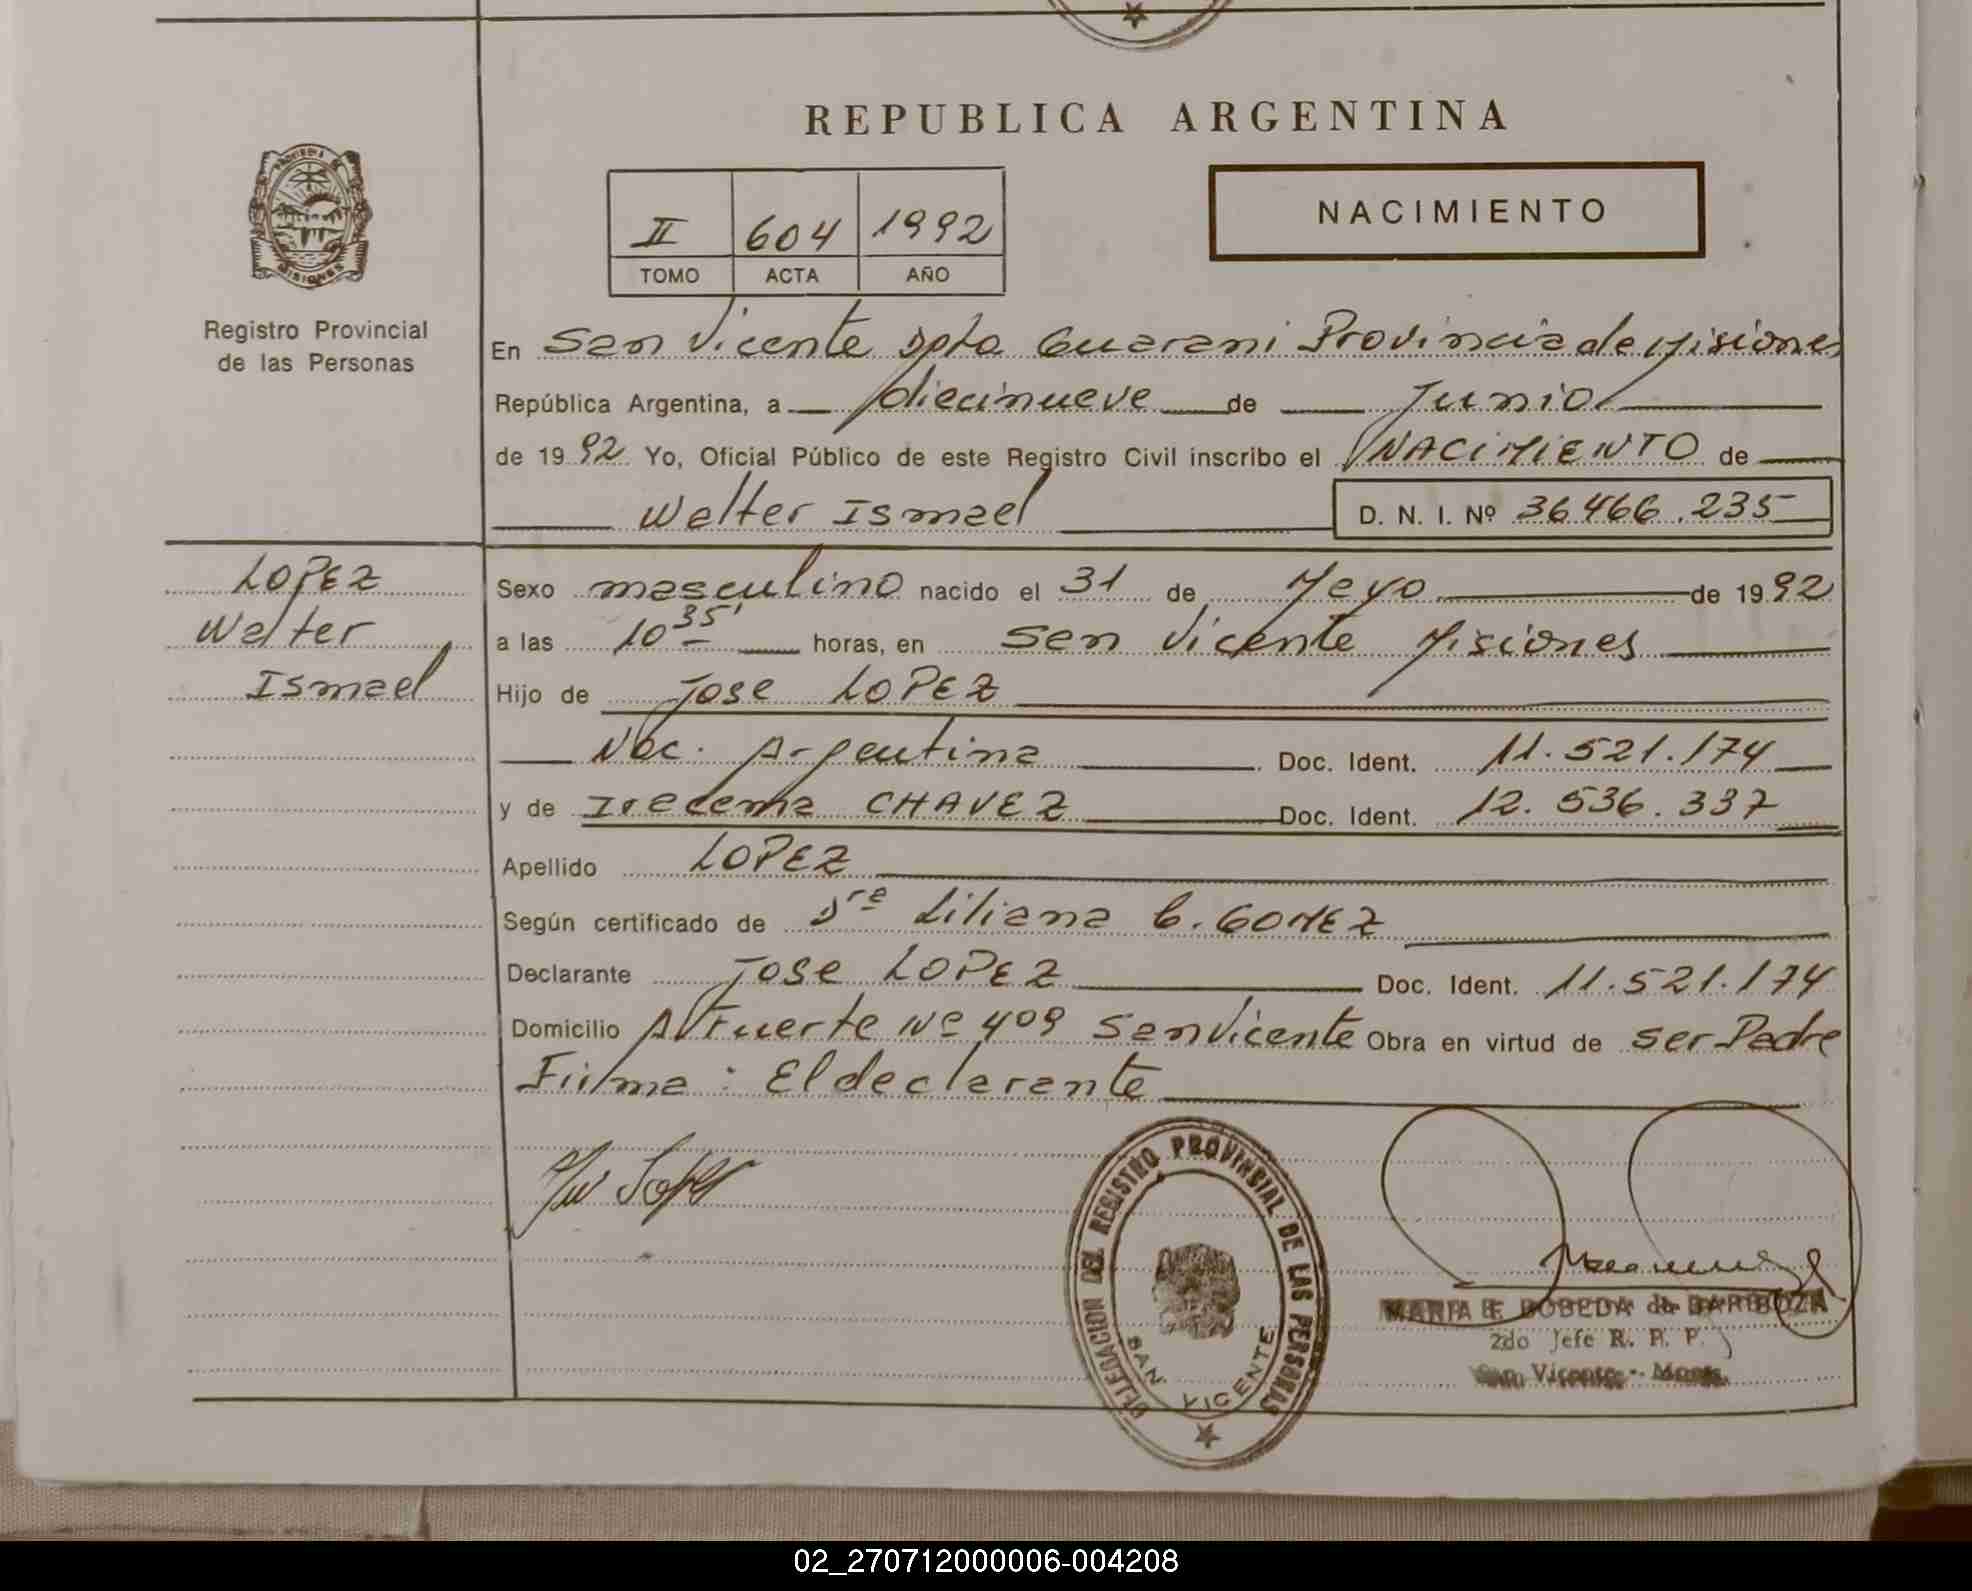 REPUBLICA ARGENTINA
PROVINCIA DE
MISIONES
Registro Provincial
de las Personas
II 604 1992
TOMO ACTA AÑO
NACIMIENTO
En San Vicente Dpto Guarani Provincia de Misiones
República Argentina, a diecinueve de Junio
de 1992 Yo, Oficial Público de este Registro Civil inscribo el NACIMIENTO de
Walter Ismael D. N. I. Nº 36.466.235
LOPEZ
Walter
Ismael
Sexo masculino nacido el 31 de Mayo de 1992
a las 10 35' horas, en San Vicente Misiones
Hijo de Jose LOPEZ
Nac. Argentina Doc. Ident. 11.521.174
y de Irecema CHAVEZ Doc. Ident. 12.536.337
Apellido LOPEZ
Según certificado de Dra Liliana C. GOMEZ
Declarante Jose LOPEZ Doc. Ident. 11.521.174
Domicilio Al Fuerte Nº 409 San Vicente Obra en virtud de ser Padre
Firma: El declarante
DELEGACION DEL REGISTRO PROVINCIAL DE LAS PERSONAS
SAN VICENTE
MARIA E. BOBEDA de BARBOZA
2do Jefe R. P. P.
San Vicente - Mnes.
02_270712000006-004208